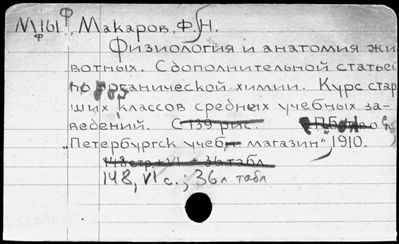 М161 Ф, Макаров, Ф. Н.
Физиология и анатомия жи
вотных. С дополнительной статьей
по органической химии. Курс стар
ших классов средних учебных за-
ведений. С 139 рис.
„Петербургск учеб магазин", 1910.
148 стр. + VI + 36 табл
148, VI с.; 36 л табл